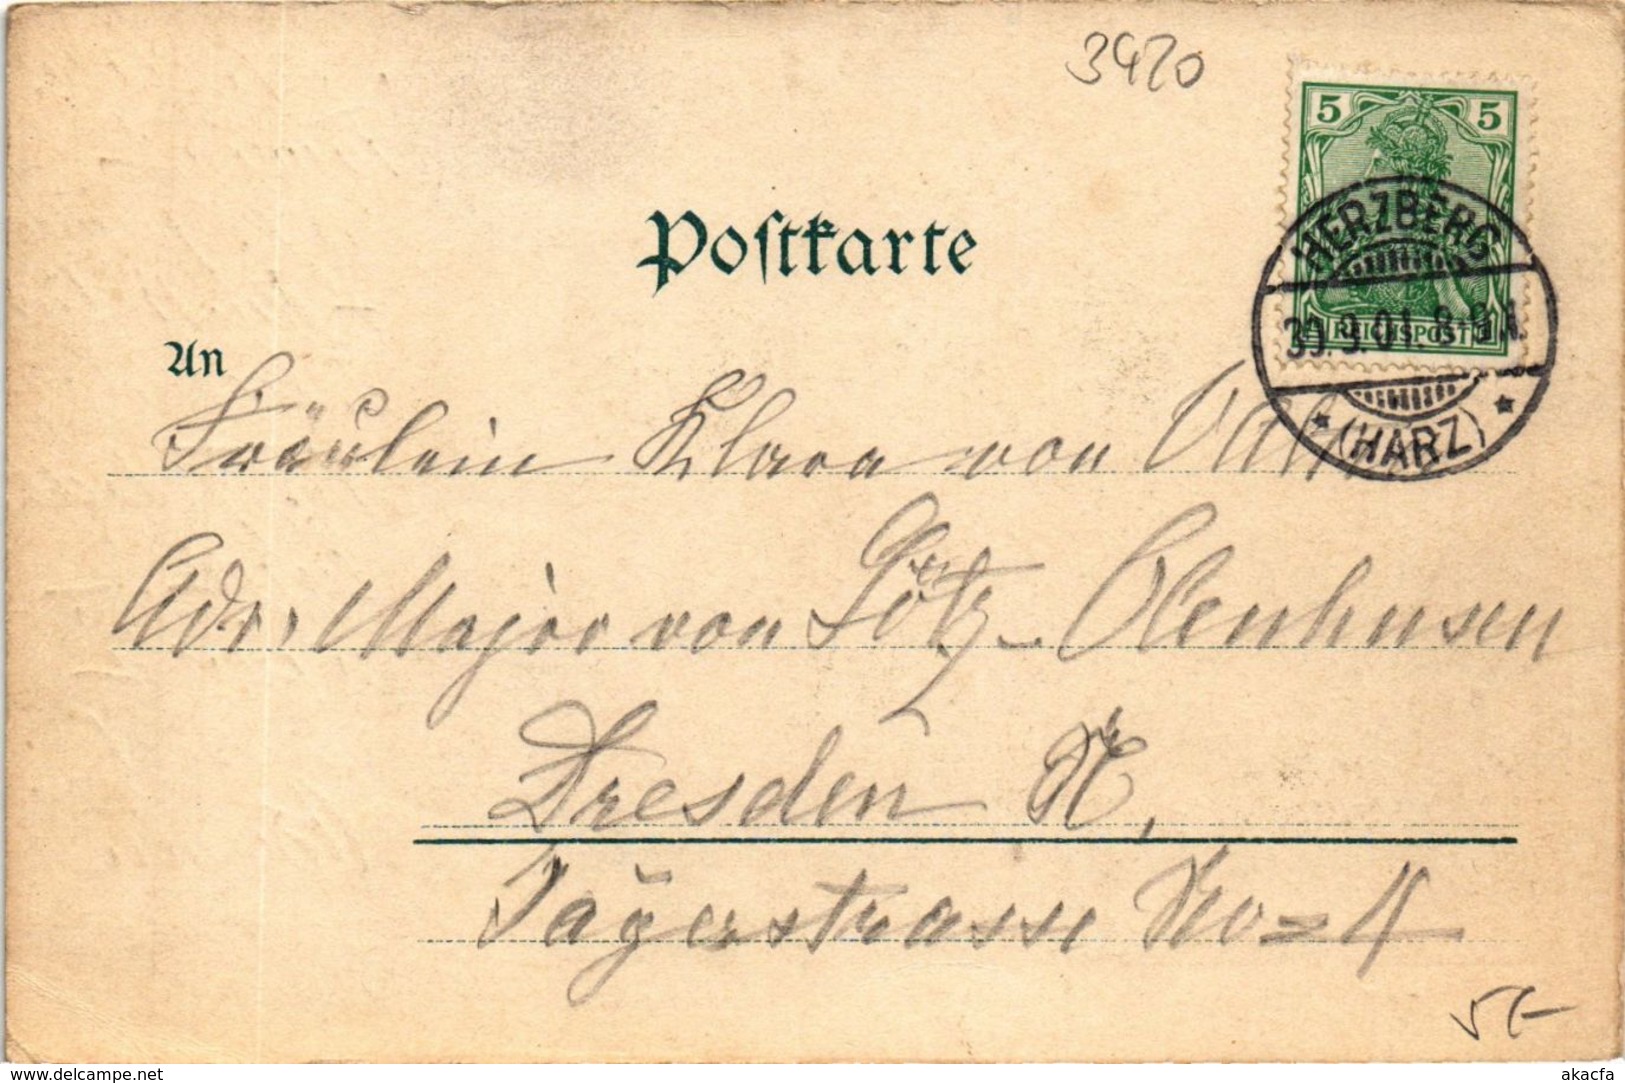 3420
5 5
REICHSPOST
HERZBERG
30.9.01. 8-9 V.
(HARZ)
Postkarte
An
Fräulein Klara von
Adr. Major von Götz-Olenhusen
Dresden N,
Jägerstrasse No=4
5€-
www.delcampe.net
akacfa